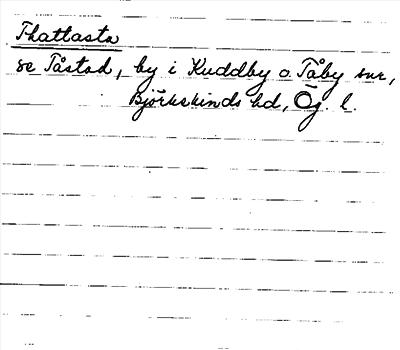 Thattasta
se Tåstad, by i Kuddby o. Tåby snr,
Björkekinds hd, Ög. l.